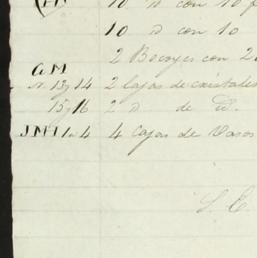 10 d con 10 p
10 d con 10
2 Bocoyes con 2
G M
n. 13 y 14 2 Cajas de cristales
15 y 16 2 d de D.
J M 1 a 4 4 Cajas de Vasos
S. E.